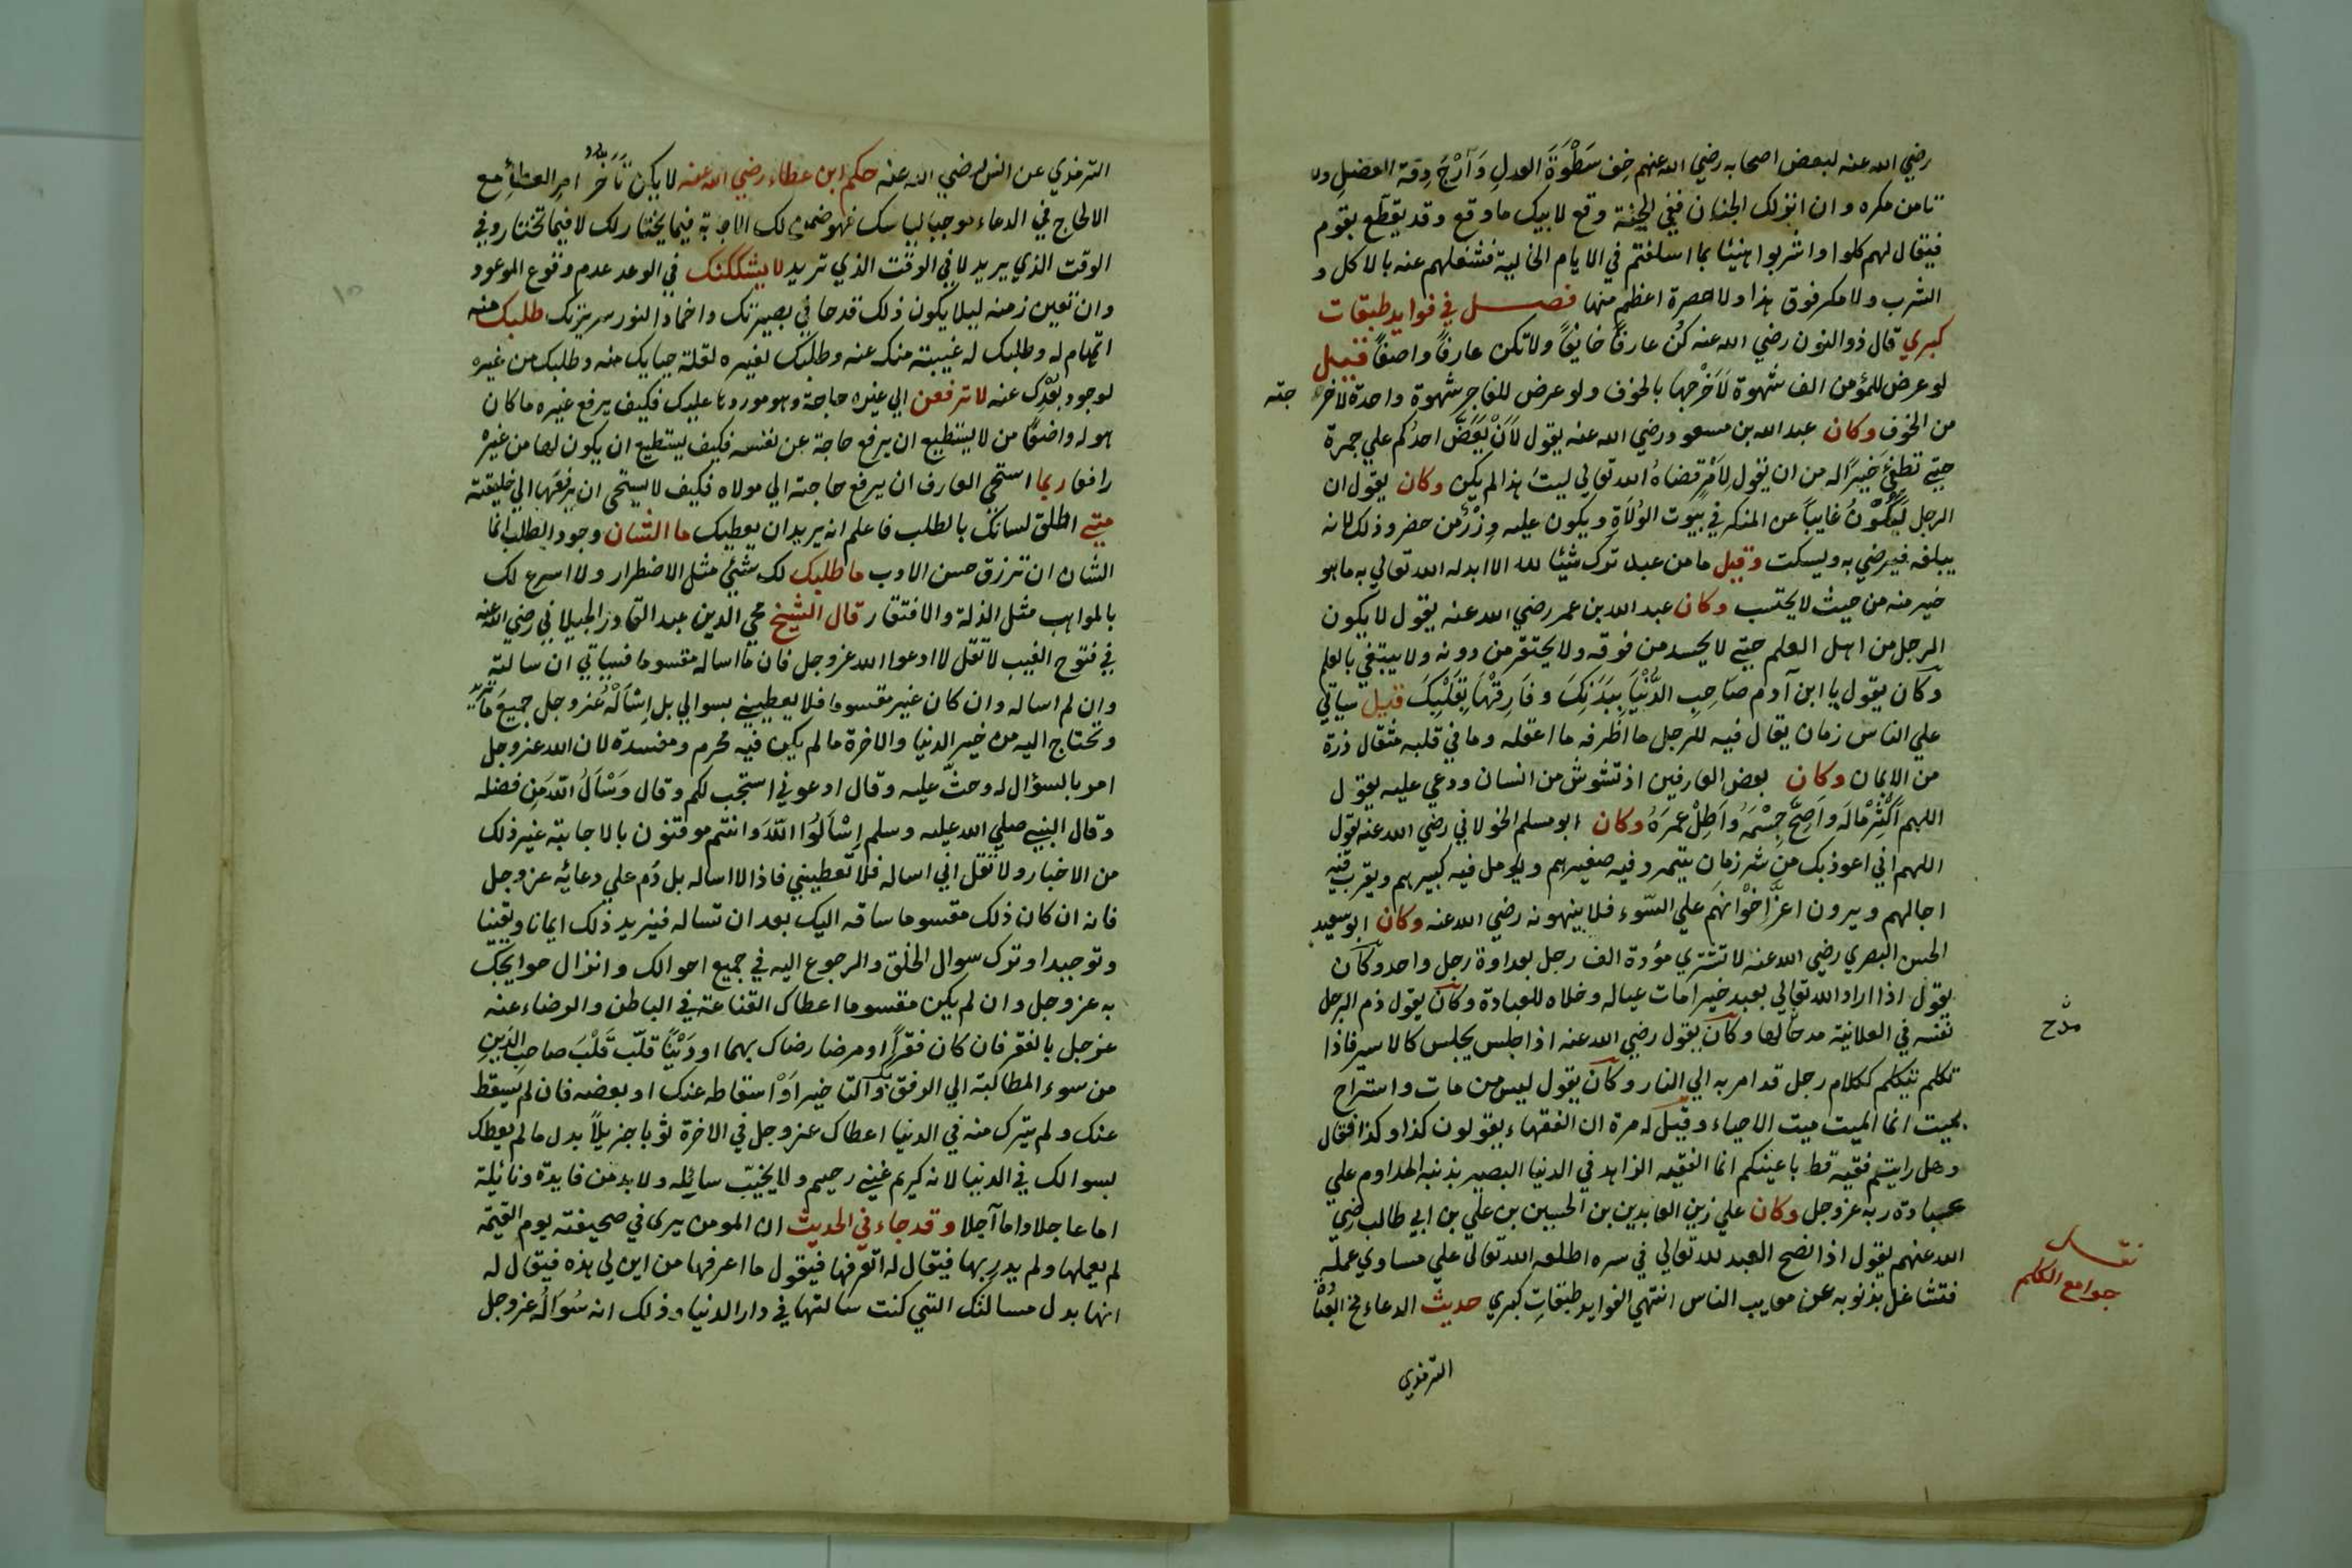 رضي الله عنه لبعض اصحابه رضي الله عنهم خِف سَطْوَةَ العدلِ وَاَرْجَ رقة الفضلِ ولا
تامن مكره وان انزلك الجنان ففي الجنة وقع لابيك ماوقع وقد يقطع بقوم
فيقال لهم كلوا واشربوا هنيئا بما اسلفتم في الايام الخالية فشغلهم عنه بالاكل و
الشرب ولا مكر فوق هذا ولا حسرة اعظم منها فصل في فوايد طبقات
كبري قال ذوالنون رضي الله عنه كُن عارفًا خايفًا ولا تكن عارفًا واصفًا قيل
لوعرض للمؤمن الف شهوة لَاَخْرَجها بالخوف ولوعرض للفاجر شهوة واحدة لاخر جته
من الخوف وكان عبد الله بن مسعود رضي الله عنه يقول لَاَنْ يَعَضَّ احدُكم علي جمرة
حتي تطفئ خيرًا له من ان يقول لِاَمْرٍ قضاهُ الله تعالي ليتَ هذا لم يكن وكان يقول ان
الرجل ليكونُ غايباً عن المنكر في بيوت الوُلَاةِ ويكون عليه وِزْرُ من حضر وذلك لانه
يبلغه فيرضي به ويسكت وقيل مامن عبد ترك شيئا لله الا ابدله الله تعالي به ماهو
خير منه من حيث لا يحتسب وكان عبد الله بن عمر رضي الله عنه يقول لا يكون
الرجل من اهل العلم حتي لا يحسد من فوقه ولا يحتقر من دونه ولا يبتغي بالعلم
وكان يقول يا ابن آدم صَاحِبِ الدُّنْيَا بِبَدَنِكَ وفَارِقْهَا بِقَلْبِكَ قيل سياتي
علي الناس زمان يقال فيه للرجل ما اظرفه ما اعقله وما في قلبه مثقال ذرة
من الايمان وكان بعض العارفين اذ تشوش من انسان ودعي عليه يقول
اللهم اَكْثِرْ مَالَه واَصِحَّ جِسْمَهُ واَطِلْ عمرَهُ وكان ابو مسلم الخولاني رضي الله عنه يقول
اللهم اني اعوذبك من شر زمان يتمرد فيه صغيرهم ويؤمل فيه كبيرهم ويقرب فيه
اجالهم ويرون اعزَّ اِخْوانهم علي السّوء فلا ينهونه رضي الله عنه وكان ابوسعيد
الحسن البصري رضي الله عنه لا تشتري مؤدة الف رجل بعداوة رجل واحد وكان
يقول اذا اراد الله تعالي بعبد خيرا امات عياله وخلاه للعبادة وكان يقول ذم الرجل
نفسه في العلانية مدحا لها وكان يقول رضي الله عنه اذا جلس يجلس كالاسير فاذا
مدّح
تكلم يتكلم ككلام رجل قد امر به الي النار وكان يقول ليس من مات واستراح
بميت انما الميت ميت الاحياء وقيل له مرة ان الفقهاء يقولون كذا وكذا فقال
وهل رايتم فقيه قط باعينكم انما الفقيه الزاهد في الدنيا البصير بذنبه المداوم علي
عبادة ربه عزوجل وكان علي زين العابدين بن الحسين بن علي بن ابي طالب رضي
الله عنهم يقول اذا نصح العبد لله تعالي في سره اطلعه الله تعالي علي مساوي عمله
فتشاغل بذنوبه عن معايب الناس انتهي الفوايد طبقاتِ كبري حديث الدعاء مخ العباد
جوامع الكلم
الترمذي
الترمذي عن انس رضي الله عنه حكم ابن عطاء رضي الله عنه لا يكن تَاَخَّر امر العطائِ مع
الالحاح في الدعاء موجبا لياسك فهو ضمن لك الاجابة فيما يختار لك لا فيما تختار وفي
الوقت الذي يريد لا في الوقت الذي تريد لا يشككنك في الوعد عدم وقوع الموعود
وان تعين زمنه ليلا يكون ذلك قدحا في بصيرتك واخمادا لنور سريرتك طلبك منه
اتهام له وطلبك له غيبة منك عنه وطلبك لغيره لقلة حيايك منه وطلبك من غيره
لوجود بُعْدِك عنه لا ترفعن الي غيره حاجة وهو موردها عليك فكيف يرفع غيره ماكان
هوله واضعًا من لا يستطيع ان يرفع حاجة عن نفسه فكيف يستطيع ان يكون لها من غيره
رافعا ربما استحي العارف ان يرفع حاجته الي مولاه فكيف لا يستحي ان يرفعها الي خليقته
متي اطلق لسانك بالطلب فاعلم انه يريد ان يعطيك ما الشان وجود الطلب انما
الشان ان ترزق حسن الادب ما طلبك لك شئي مثل الاضطرار ولا اسرع لك
بالمواهب مثل الذلة والافتقار قال الشيخ محي الدين عبد القادر الجيلاني رضي الله عنه
في فتوح الغيب لا تقل لا ادعوا الله عزوجل فان ما اساله مقسوما فسياتي ان سالته
وان لم اساله وان كان غير مقسوما فلا يعطيني بسوالي بل اِسْاَلْهُ عزوجل جميعَ ما تريد
وتحتاج اليه من خير الدنيا والاخرة مالم يكن فيه محرم ومفسدة لان الله عزوجل
امر بالسؤال له وحثّ عليه وقال ادعوني استجب لكم وقال وَسْاَلُ اللّهَ مِن فضله
وقال النبي صلي الله عليه وسلم اِسْاَلُوا اللّهَ وانتم موقنون بالاجابة غير ذلك
من الاخبار ولا تقل اني اساله فلا تعطيني فاذا لا اساله بل دُم علي دعائه عزوجل
فانه ان كان ذلك مقسوما ساقه اليك بعد ان تساله فيزيد ذلك ايمانا ويقينا
وتوحيدا وترك سوال الخلق والرجوع اليه في جميع احوالك وانزال حوايجك
به عزوجل وان لم يكن مقسوما اعطاك القناعة في الباطن والرضاء عنه
عزوجل بالفقر فان كان فقراً او مرضا رضاك بهما او دَيْنًا قلّب قَلْبَ صاحب الدَينِ
من سوء المطالبة الي الرفق بك والتاخير اَوْ اسقاطه عنك او بعضه فان لم يسقط
عنك ولم يترك منه في الدنيا اعطاك عزوجل في الاخرة ثوبا جزيلاً بدل مالم يعطك
بسوالك في الدنيا لانه كريم غني رحيم ولا يخيّب سائِله ولا بد من فايدة ونائيلة
اما عاجلا واما آجلا وقد جاء في الحديث ان المومن يرى في صحيفته يوم القيمة
لم يعملها ولم يدرِ بها فيقال له اتعرفها فيقول ما اعرفها من اين لي هذه فيقال له
انها بدل مسالتك التي كنت سالتها في دار الدنيا وذلك انه سُوَالُه عزوجل
١٥